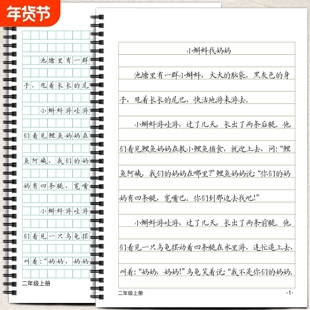 年货节
池塘里有一群
子，甩着长长的尾
小蝌蚪游
们看见鲤鱼妈妈在
鱼阿姨，我们的妈
妈有四条腿，宽嘴
小蝌蚪游
们看见一只乌龟摆
叫着："妈妈，妈妈
二年级上册
小蝌蚪找妈妈
池塘里有一群小蝌蚪，大大的脑袋，黑灰色的身
子，甩着长长的尾巴，快活地游来游去。
小蝌蚪游哇游，过了几天，长出了两条后腿。他
们看见鲤鱼妈妈在教小鲤鱼捕食，就迎上去，问："鲤
鱼阿姨，我们的妈妈在哪里？"鲤鱼妈妈说："你们的妈
妈有四条腿，宽嘴巴。你们到那边去找吧！"
小蝌蚪游哇游，过了几天，长出了两条前腿。他
们看见一只乌龟摆动着四条腿在水里游，连忙追上去，
叫着："妈妈，妈妈！"乌龟笑着说："我不是你们的妈妈。
二年级上册
-1-